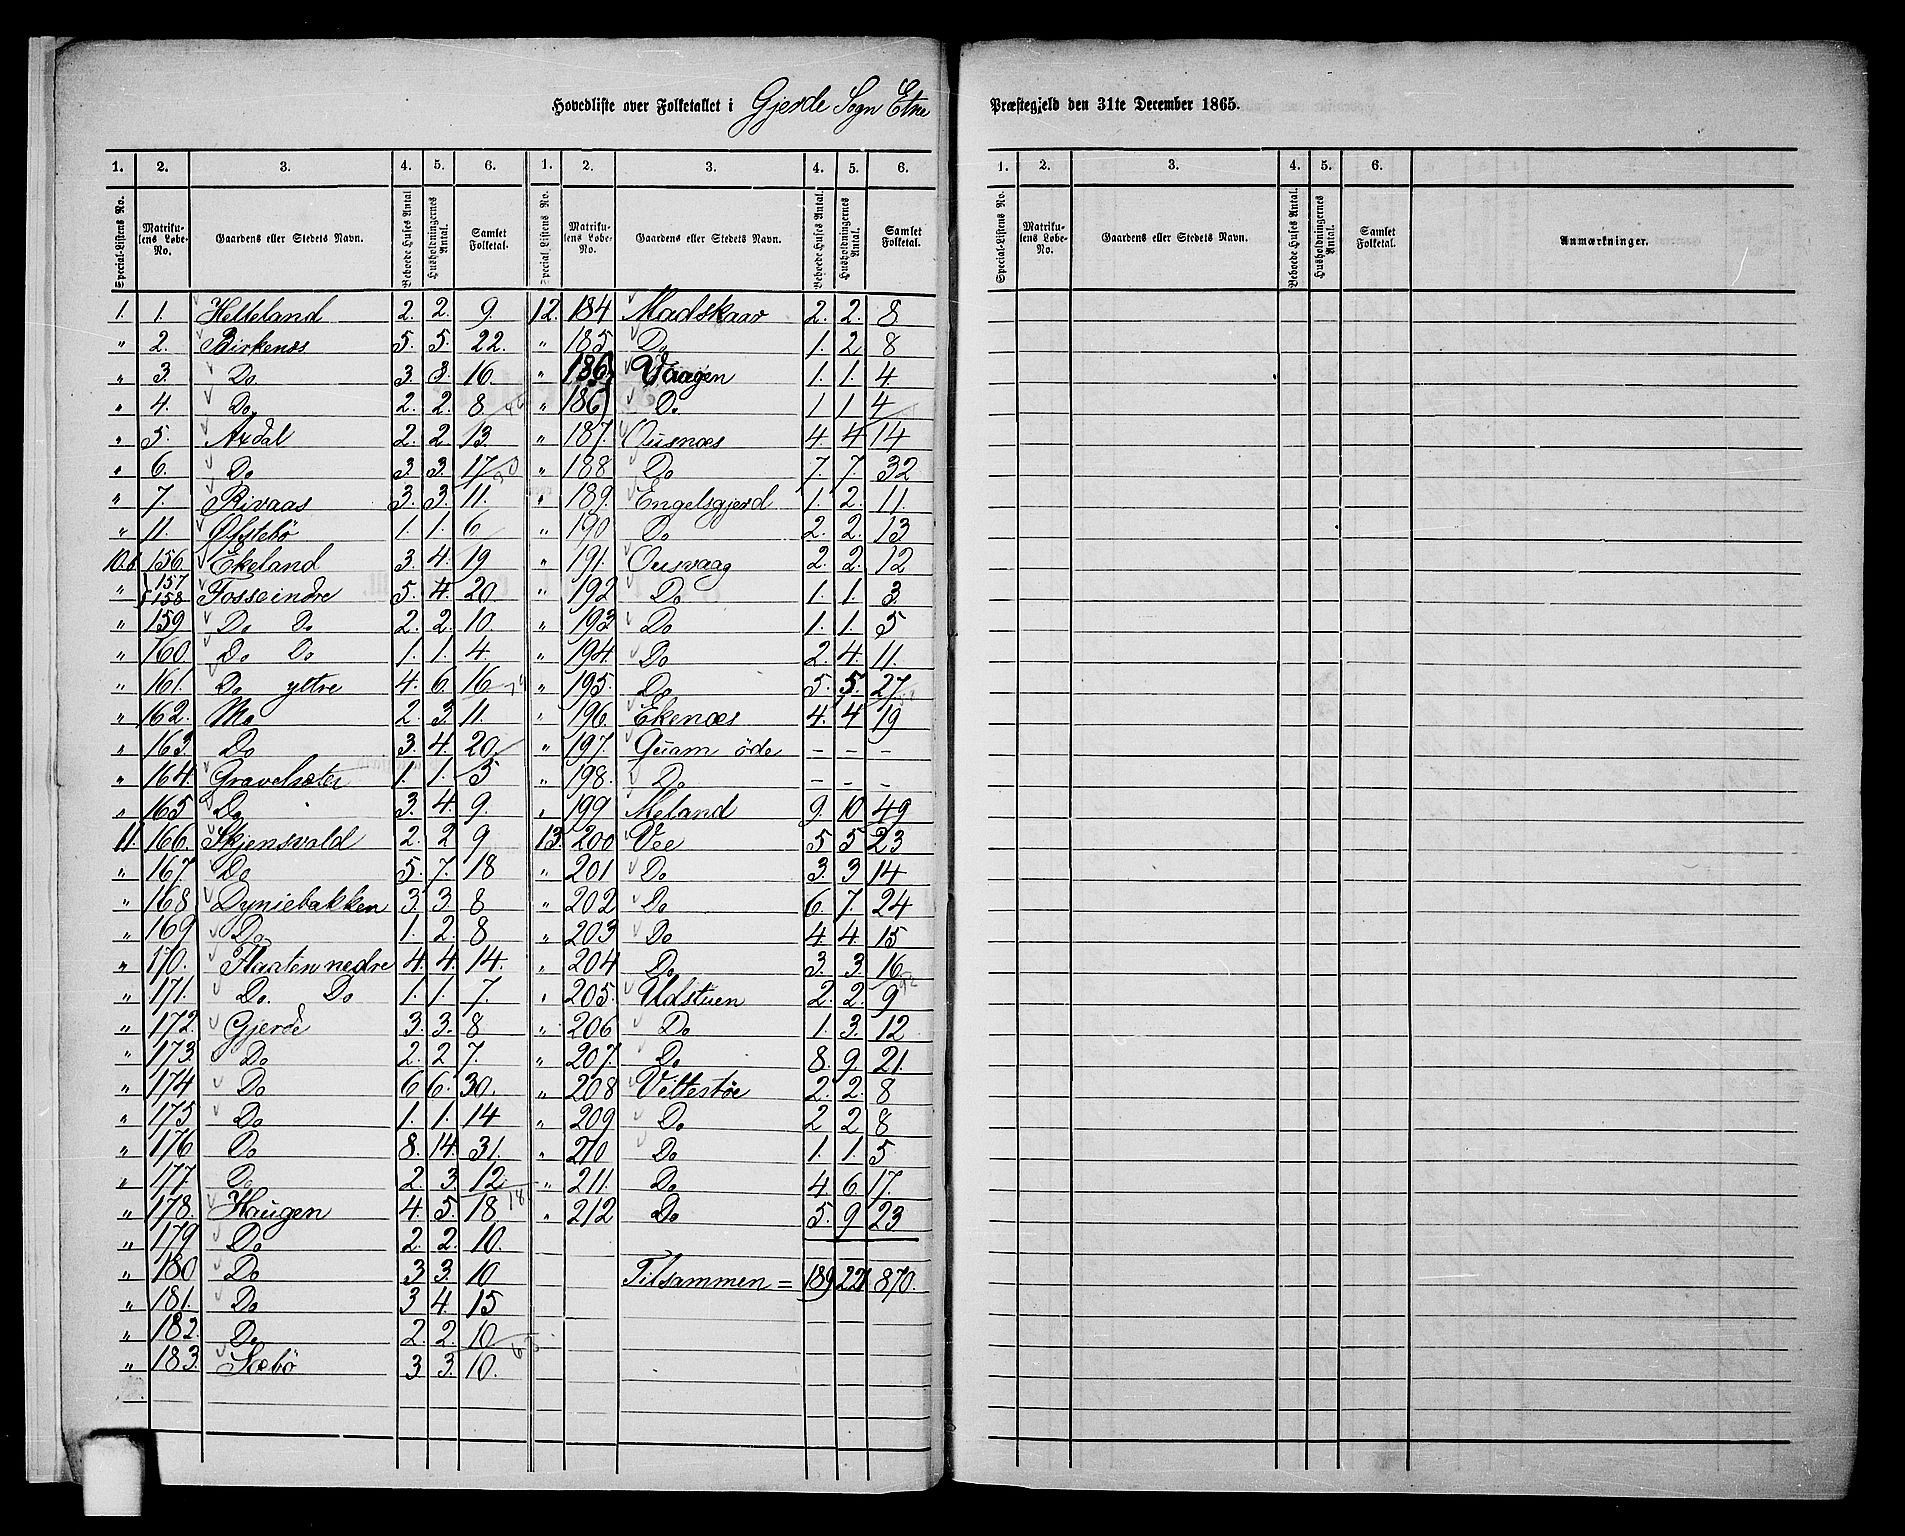 Hovedliste over Folketallet i Gjerde Sogn Etne Præstegjeld den 31te December 1865.
1. 2. 3. 4. 5. 6. 1. 2. 3. 4. 5. 6.
Special-Listens No. Matrikulens Løbe-No. Gaardens eller Stedets Navn. Beboede Huses Antal Husholdningernes Antal. Samlet Folketal. Special-Listens No. Matrikulens Løbe-No. Gaardens eller Stedets Navn. Beboede Huses Antal. Husholdningernes Antal. Samlet Folketal.
1. 1. Helleland 2. 2. 9. 12. 184 Madskaar 2. 2. 8
" 2. Birkenæs 5. 5. 22. " 185 Do 1. 2 8
" 3. Do 3. 3. 16. " 186 Vaagen 1. 1. 4
" 4. Do 2. 2. 8 " 186 Do 1 1 4
" 5. Axdal 2. 2 13. " 187. Ousnæs 4 4 14
" 6. Do 3. 3. 17 " 188 Do 7. 7. 32
" 7. Rivaas 3. 3. 11. " 189. Engelsgjerd 1. 2. 11.
" 11. Øfstebö 1. 1. 6 " 190 Do 2. 2. 13
10. 156. Ekeland 3. 4. 19 " 191. Ousvaag 2. 2. 12
" 157 158 Fosse indre 5. 4. 20. " 192 Do 1. 1. 3.
" 159 Do Do 2. 2. 10. " 193. Do 1. 1. 5
" 160 Do Do 1. 1. 4. " 194. Do 2. 4. 11.
" 161. Do yttre 4. 6. 16 " 195. Do 5. 5. 27
" 162. Mo 2. 3. 11. " 196. Ekenæs 4. 4 19
" 163. Do 3. 4. 20. " 197. Quam öde – – –
" 164. Gravelsæter 1. 1. 5 " 198. Do – – –
" 165 Do 3. 4. 9. " 199 Meland 9. 10 49
11. 166. Skjensvald 2. 2 9 13. 200 Vee 5 5 23
" 167. Do 5. 7. 18 " 201 Do 3. 3 14
" 168 Dyniebakken 3 3 8 " 202 Do 6. 7. 24
" 169 Do 1. 2. 8 " 203 Do 4. 4. 15
" 170. Flaaten nedre 4. 4. 14. " 204 Do 3. 3. 16
" 171. Do. Do 1. 1. 7. " 205. Udstuen 2. 2. 9
" 172. Gjerde 3. 3. 8 " 206 Do 1. 3. 12
" 173. Do 2. 2 7. " 207. Do 8. 9. 21.
" 174 Do 6 6. 30. " 208 Vettestöe 2. 2. 8
" 175 Do 1. 1. 14 " 209 Do 2 2 8
" 176 Do 8. 14. 31. " 210 Do 1. 1. 5
" 177. Do 2. 3. 12 " 211. Do 4 6 17.
" 178. Haugen 4. 5. 18 " 212 Do 5. 9 23
" 179 Do 2. 2. 10.
" 180 Do 3 3. 10 Tilsammen = 189 221 870.
" 181. Do 3 4. 15
" 182. Do 2. 2. 10
" 183. Sæbö 3 3. 10.
1. 2. 3. 4. 5. 6.
Special-Listens No. Matrikulens Løbe-No. Gaardens eller Stedets Navn. Beboede Huses Antal. Husholdningernes Antal. Samlet Folketal. Anmærkninger.